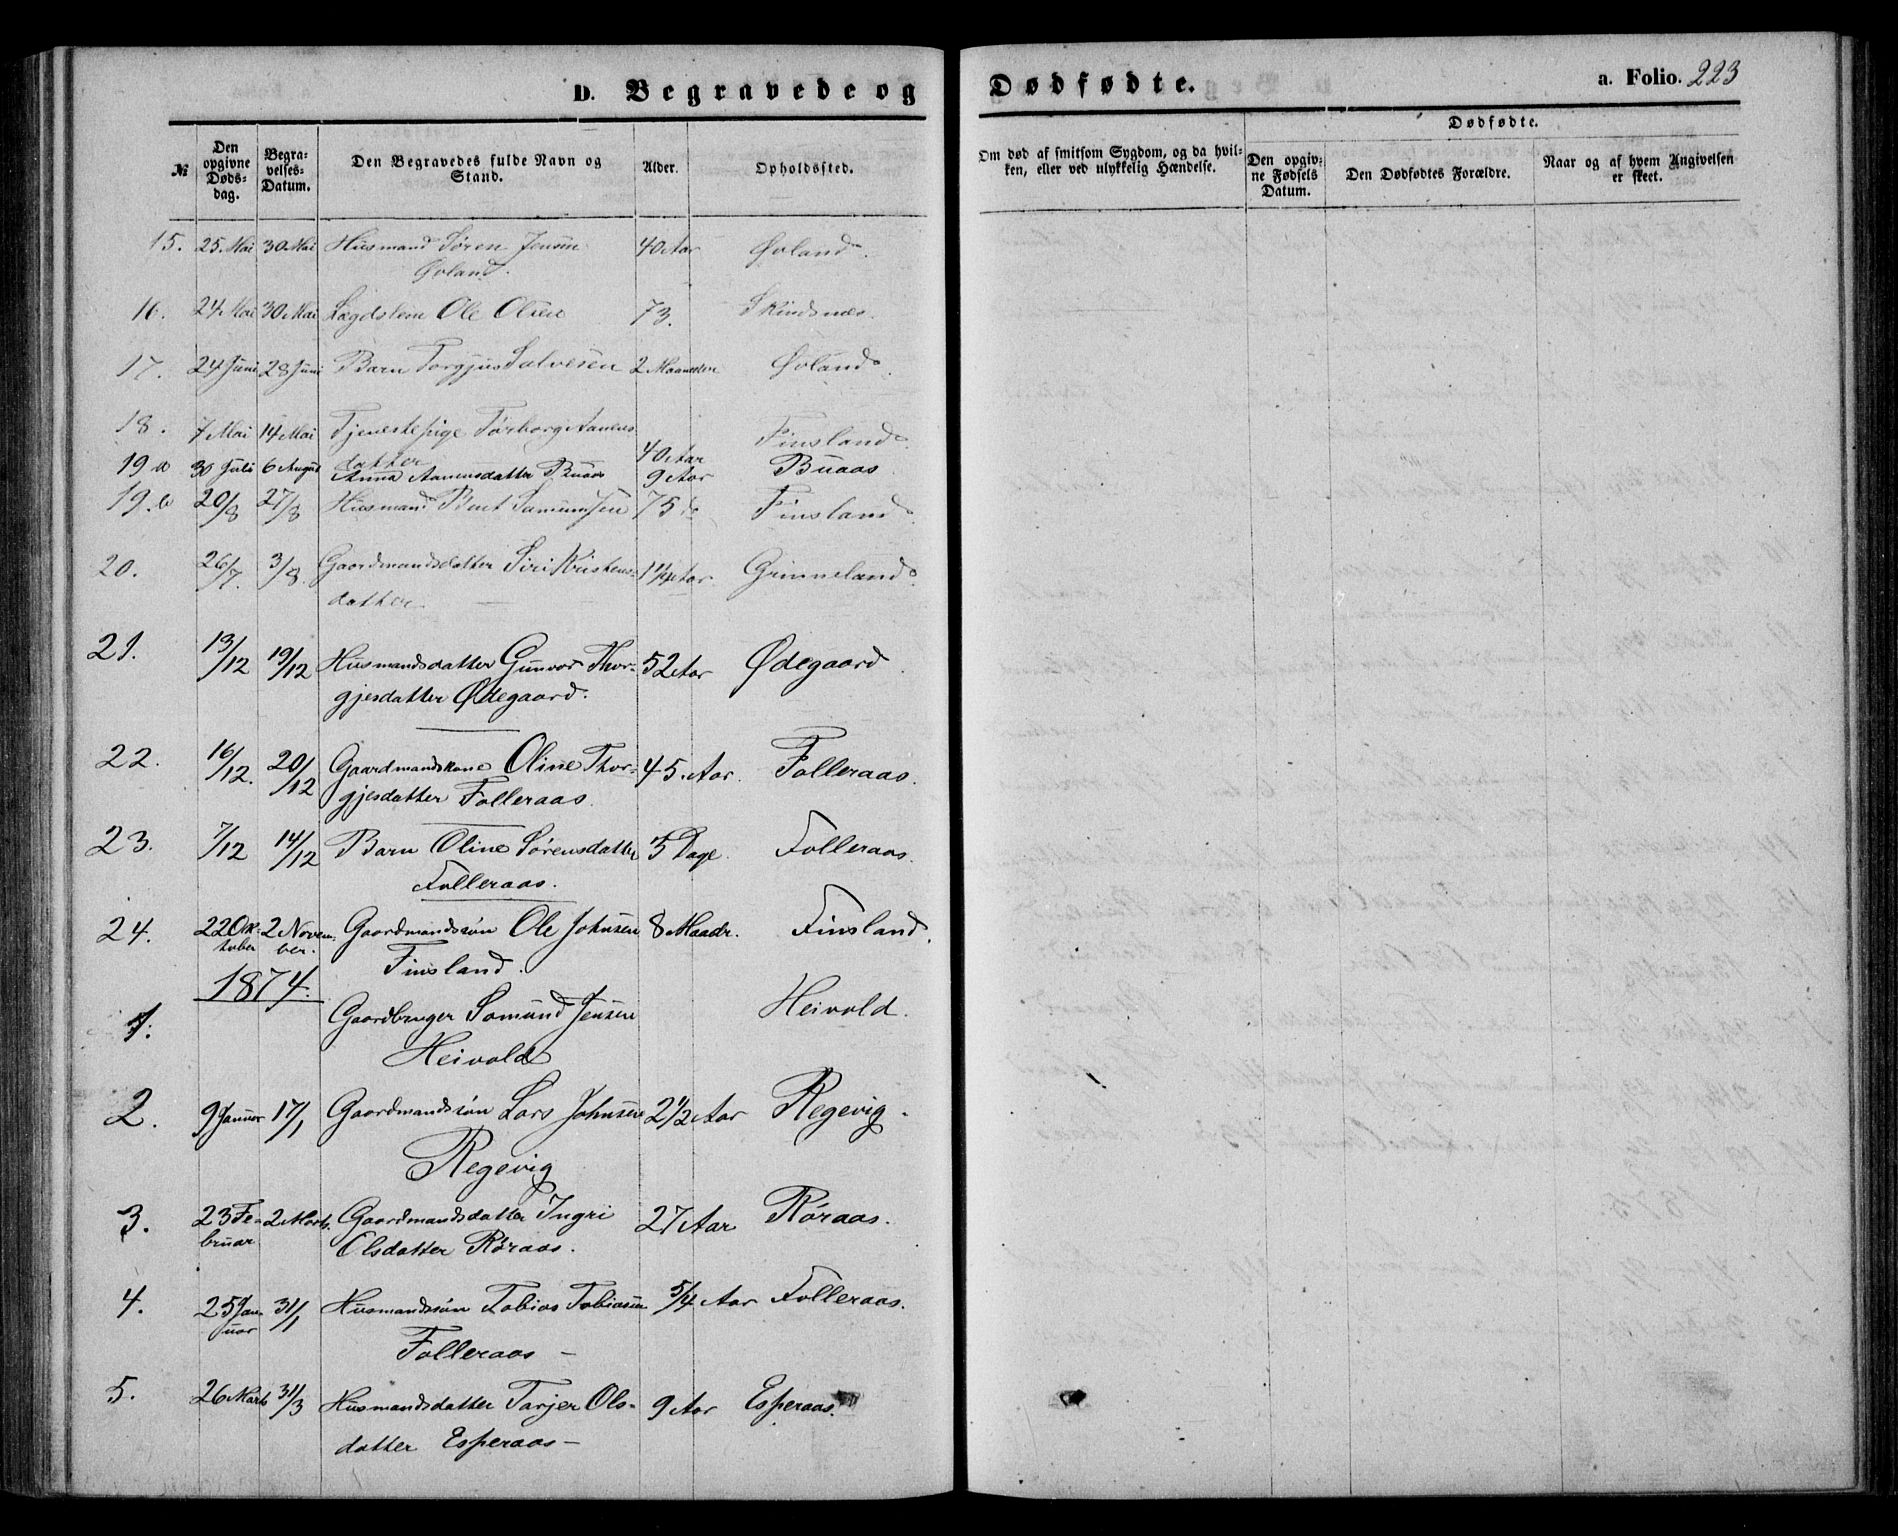 D. Begravede og Dødfødte. a. Folio. 223
№ Den opgivne Dødsdag. Begravelses-Datum. Den Begravedes fulde Navn og Stand. Alder. Opholdssted. Om død af smitsom Sygdom, og da hvilken, eller ved ulykkelig Hændelse. Dødfødte. Den opgivne Fødsels Datum. Den Dødfødtes Forældre. Naar og af hvem Angivelsen er skeet.
15. 25. Mai 30 Mai Husmand Søren Jensen 40 Aar Øvland.
Øvland.
16. 24 Mai 30 Mai Lægdslem Ole Olsen 73. Skindsnes.
17. 24 Juni 28 Juni Barn Torgjus Salvesen 2 Maaneder Øvland.
18. 7 Mai 14 Mai Tjenestepige Tørborg Aanens- 40 Aar Finsland.
datter
19 a 30 Juli 6 August Anna Aanensdatter Buaas 9 Aar Buaas
19. b 20/8 27/8 Husmand Bent Samundsen 75 d. Finsland.
20. 26/7. 3/8. Gaardmandsdatter Siri Kristens- 1 1/4 Aar. Grimeland.
datter
21. 13/12 19/12 Husmandsdatter Gunvor Thor- 52 Aar Ødegaard.
gjesdatter Ødegaard.
22. 16/12. 20/12 Gaardmandskone Oline Thor- 45. Aar. Folleraas.
gjesdatter Folleraas.
23. 7/12 14/12 Barn Oline Sørensdatter 5 Dage. Folleraas.
Folleraas.
24. 22 Oktober 2 November. Gaardmandssøn Ole Johnsen 8 Maadr. Finsland.
Finsland.
1874.
1. Gaardbruger Somund Jensen Heivold.
Heivold
2. 9 Januar 17/1 Gaardmandssøn Lars Johnsen 2 1/2 Aar Regevig.
Regevig
3. 23 Februar 2 Marts. Gaardmandsdatter Ingri 27 Aar Røraas.
Olsdatter Røraas.
4. 25 Januar 31/1 Husmandssøn Tobias Tobiasen 5/4 Aar Folleraas.
Folleraas –
5. 26 Marts 31/3 Husmandsdatter Tarjer Ols- 9 Aar Esperaas.
datter Esperaas –